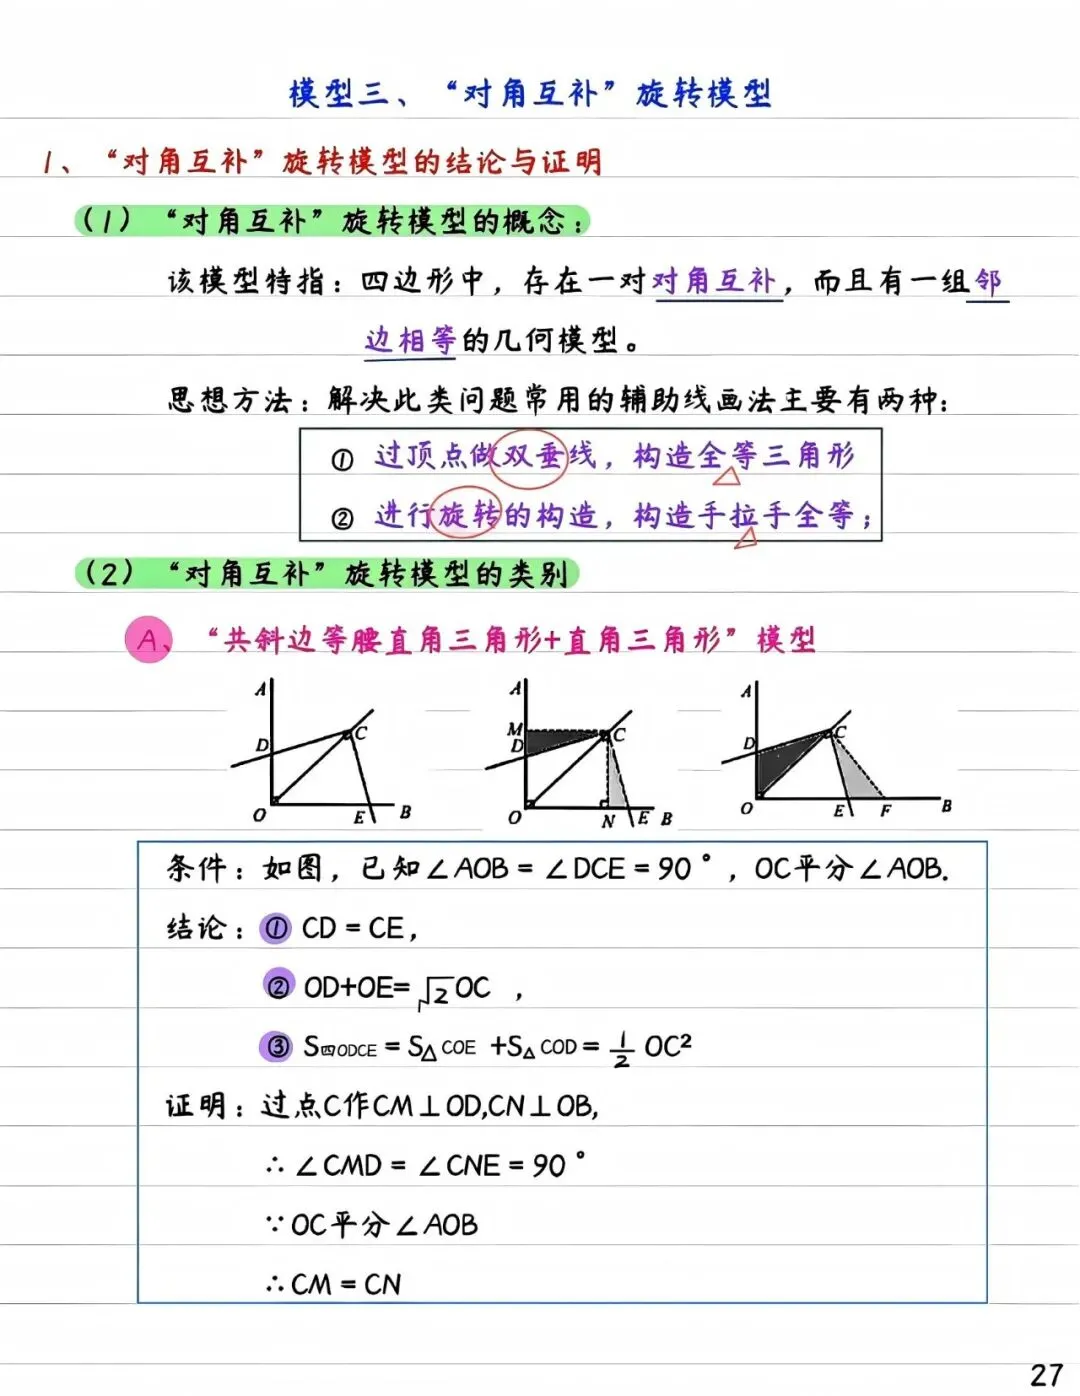 模型三、“对角互补”旋转模型
1、“对角互补”旋转模型的结论与证明
(1)“对角互补”旋转模型的概念:
该模型特指:四边形中,存在一对对角互补,而且有一组邻
边相等的几何模型。
思想方法:解决此类问题常用的辅助线画法主要有两种:
① 过顶点做双垂线,构造全等三角形
② 进行旋转的构造,构造手拉手全等;
(2)“对角互补”旋转模型的类别
A、“共斜边等腰直角三角形+直角三角形”模型
A D C O E B
A M D C O N E B
A D C O E F B
条件:如图,已知∠AOB=∠DCE=90°,OC平分∠AOB.
结论:① CD=CE,
② OD+OE=√2OC ,
③ S四ODCE=S△COE+S△COD=1/2 OC²
证明:过点C作CM⊥OD,CN⊥OB,
∴∠CMD=∠CNE=90°
∵OC平分∠AOB
∴CM=CN
27